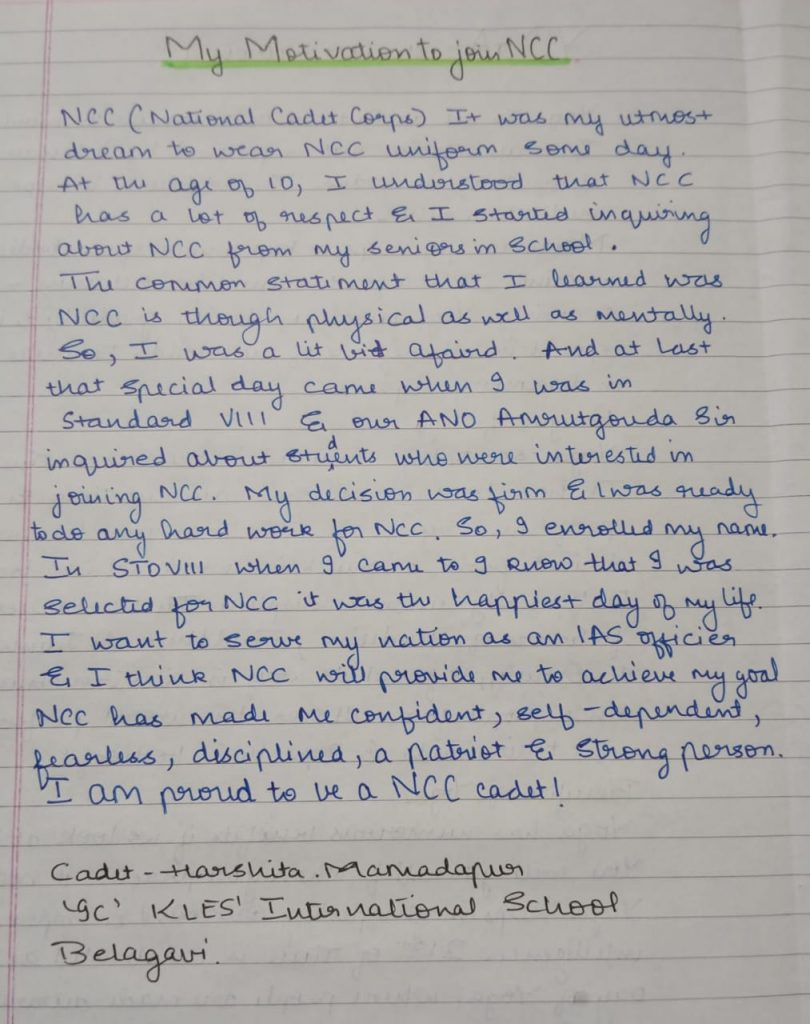 My Motivation to join NCC
NCC (National Cadet Corps) It was my utmost
dream to wear NCC uniform some day.
At the age of 10, I understood that NCC
has a lot of respect & I started inquiring
about NCC from my seniors in School.
The common statement that I learned was
NCC is though physical as well as mentally.
So, I was a lit bit afaird. And at last
that special day came when I was in
Standard VIII & our ANO Amrutgouda Sir
inquired about students who were interested in
joining NCC. My decision was firm & I was ready
to do any hard work for NCC. So, I enrolled my name.
In STD VIII when I came to I know that I was
selected for NCC it was the happiest day of my life.
I want to serve my nation as an IAS officier
& I think NCC will provide me to achieve my goal
NCC has made me confident, self-dependent,
fearless, disciplined, a patriot & strong person.
I am proud to be a NCC cadet!
Cadet - Harshita. Mamadapur
'9C' KLES' International School
Belagavi.